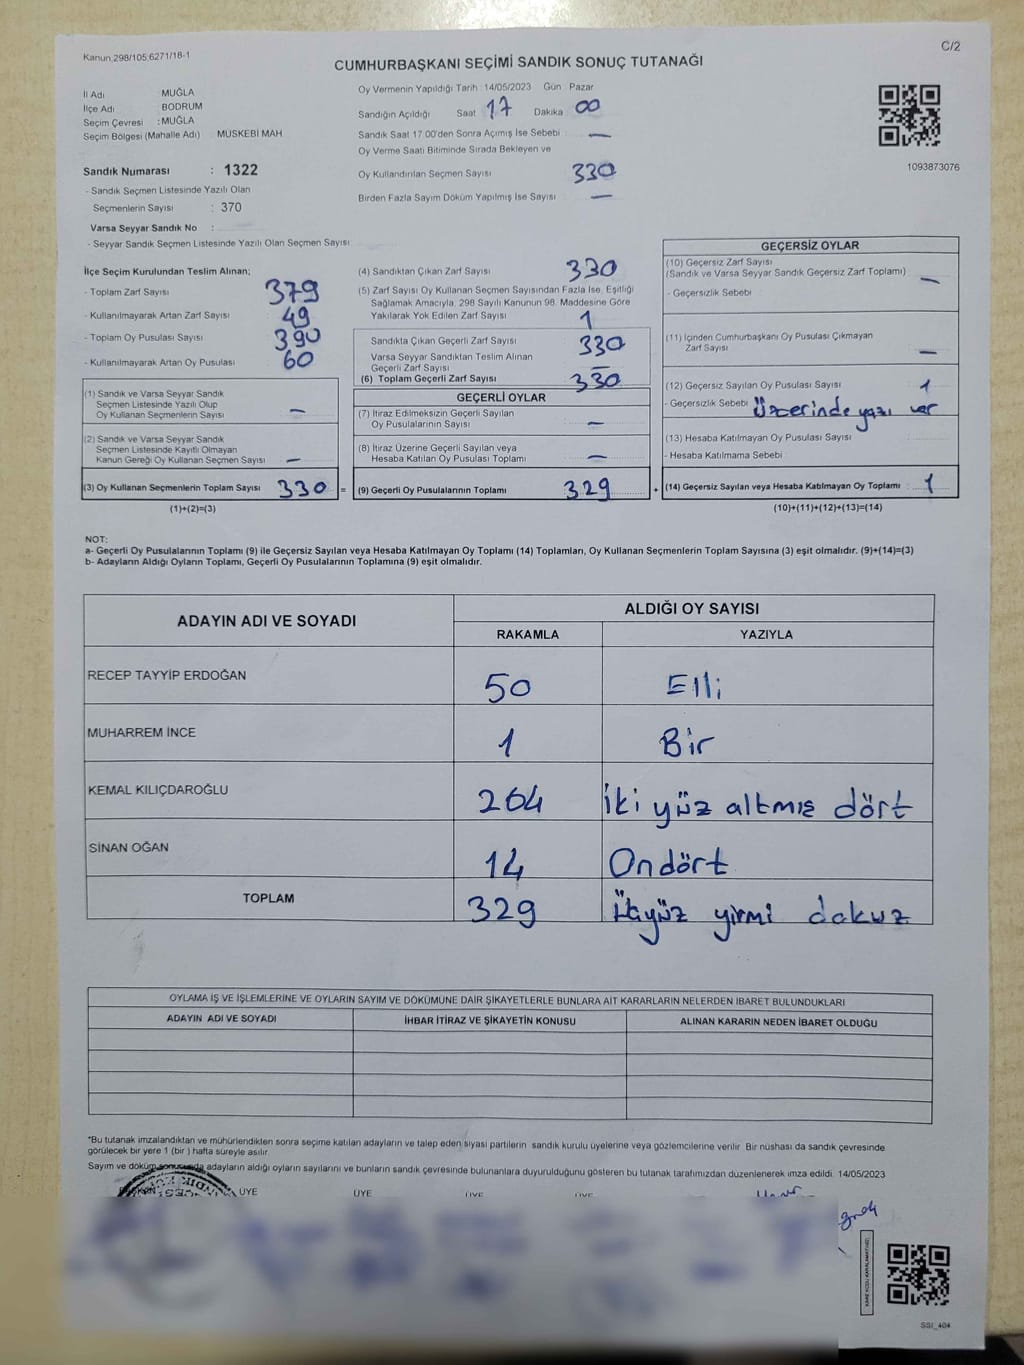 Kanun;298/105;6271/18-1
C/2
CUMHURBAŞKANI SEÇİMİ SANDIK SONUÇ TUTANAĞI
İl Adı : MUĞLA
İlçe Adı : BODRUM
Seçim Çevresi : MUĞLA
Seçim Bölgesi (Mahalle Adı) MUSKEBİ MAH
Sandık Numarası : 1322
- Sandık Seçmen Listesinde Yazılı Olan
Seçmenlerin Sayısı : 370
Varsa Seyyar Sandık No :
- Seyyar Sandık Seçmen Listesinde Yazılı Olan Seçmen Sayısı
Oy Vermenin Yapıldığı Tarih : 14/05/2023 Gün Pazar
Sandığın Açıldığı Saat 17 Dakika 00
Sandık Saat 17.00'den Sonra Açımış İse Sebebi —
Oy Verme Saati Bitiminde Sırada Bekleyen ve
Oy Kullandırılan Seçmen Sayısı 330
Birden Fazla Sayım Döküm Yapılmış İse Sayısı —
1093873076
İlçe Seçim Kurulundan Teslim Alınan;
- Toplam Zarf Sayısı 379
- Kullanılmayarak Artan Zarf Sayısı 49
- Toplam Oy Pusulası Sayısı 390
- Kullanılmayarak Artan Oy Pusulası 60
(1) Sandık ve Varsa Seyyar Sandık
Seçmen Listesinde Yazılı Olup
Oy Kullanan Seçmenlerin Sayısı —
(2) Sandık ve Varsa Seyyar Sandık
Seçmen Listesinde Kayıtlı Olmayan
Kanun Gereği Oy Kullanan Seçmen Sayısı —
(3) Oy Kullanan Seçmenlerin Toplam Sayısı 330 =
(1)+(2)=(3)
(4) Sandıktan Çıkan Zarf Sayısı 330
(5) Zarf Sayısı Oy Kullanan Seçmen Sayısından Fazla İse, Eşitliği
Sağlamak Amacıyla, 298 Sayılı Kanunun 98. Maddesine Göre
Yakılarak Yok Edilen Zarf Sayısı 1
Sandıkta Çıkan Geçerli Zarf Sayısı 330
Varsa Seyyar Sandıktan Teslim Alınan
Geçerli Zarf Sayısı —
(6) Toplam Geçerli Zarf Sayısı 330
GEÇERLİ OYLAR
(7) İtiraz Edilmeksizin Geçerli Sayılan
Oy Pusulalarının Sayısı —
(8) İtiraz Üzerine Geçerli Sayılan veya
Hesaba Katılan Oy Pusulası Toplamı —
(9) Geçerli Oy Pusulalarının Toplamı 329 +
GEÇERSİZ OYLAR
(10) Geçersiz Zarf Sayısı
(Sandık ve Varsa Seyyar Sandık Geçersiz Zarf Toplamı) —
- Geçersizlik Sebebi :
(11) İçinden Cumhurbaşkanı Oy Pusulası Çıkmayan
Zarf Sayısı —
(12) Geçersiz Sayılan Oy Pusulası Sayısı 1
- Geçersizlik Sebebi Üzerinde yazı var
(13) Hesaba Katılmayan Oy Pusulası Sayısı
- Hesaba Katılmama Sebebi
(14) Geçersiz Sayılan veya Hesaba Katılmayan Oy Toplamı 1
(10)+(11)+(12)+(13)=(14)
NOT:
a- Geçerli Oy Pusulalarının Toplamı (9) ile Geçersiz Sayılan veya Hesaba Katılmayan Oy Toplamı (14) Toplamları, Oy Kullanan Seçmenlerin Toplam Sayısına (3) eşit olmalıdır. (9)+(14)=(3)
b- Adayların Aldığı Oyların Toplamı, Geçerli Oy Pusulalarının Toplamına (9) eşit olmalıdır.
ADAYIN ADI VE SOYADI
ALDIĞI OY SAYISI
RAKAMLA YAZIYLA
RECEP TAYYİP ERDOĞAN 50 Elli
MUHARREM İNCE 1 Bir
KEMAL KILIÇDAROĞLU 264 İki yüz altmış dört
SİNAN OĞAN 14 Ondört
TOPLAM 329 Üçyüz yirmi dokuz
OYLAMA İŞ VE İŞLEMLERİNE VE OYLARIN SAYIM VE DÖKÜMÜNE DAİR ŞİKAYETLERLE BUNLARA AİT KARARLARIN NELERDEN İBARET BULUNDUKLARI
ADAYIN ADI VE SOYADI İHBAR İTİRAZ VE ŞİKAYETİN KONUSU ALINAN KARARIN NEDEN İBARET OLDUĞU
*Bu tutanak imzalandıktan ve mühürlendikten sonra seçime katılan adayların ve talep eden siyasi partilerin sandık kurulu üyelerine veya gözlemcilerine verilir. Bir nüshası da sandık çevresinde
görülecek bir yere 1 (bir ) hafta süreyle asılır.
Sayım ve döküm sonucunda adayların aldığı oyların sayılarını ve bunların sandık çevresinde bulunanlara duyurulduğunu gösteren bu tutanak tarafımızdan düzenlenerek imza edildi. 14/05/2023
ÜYE ÜYE ÜYE ÜYE
KARE KODU KARALAMAYINIZ
SSI_404